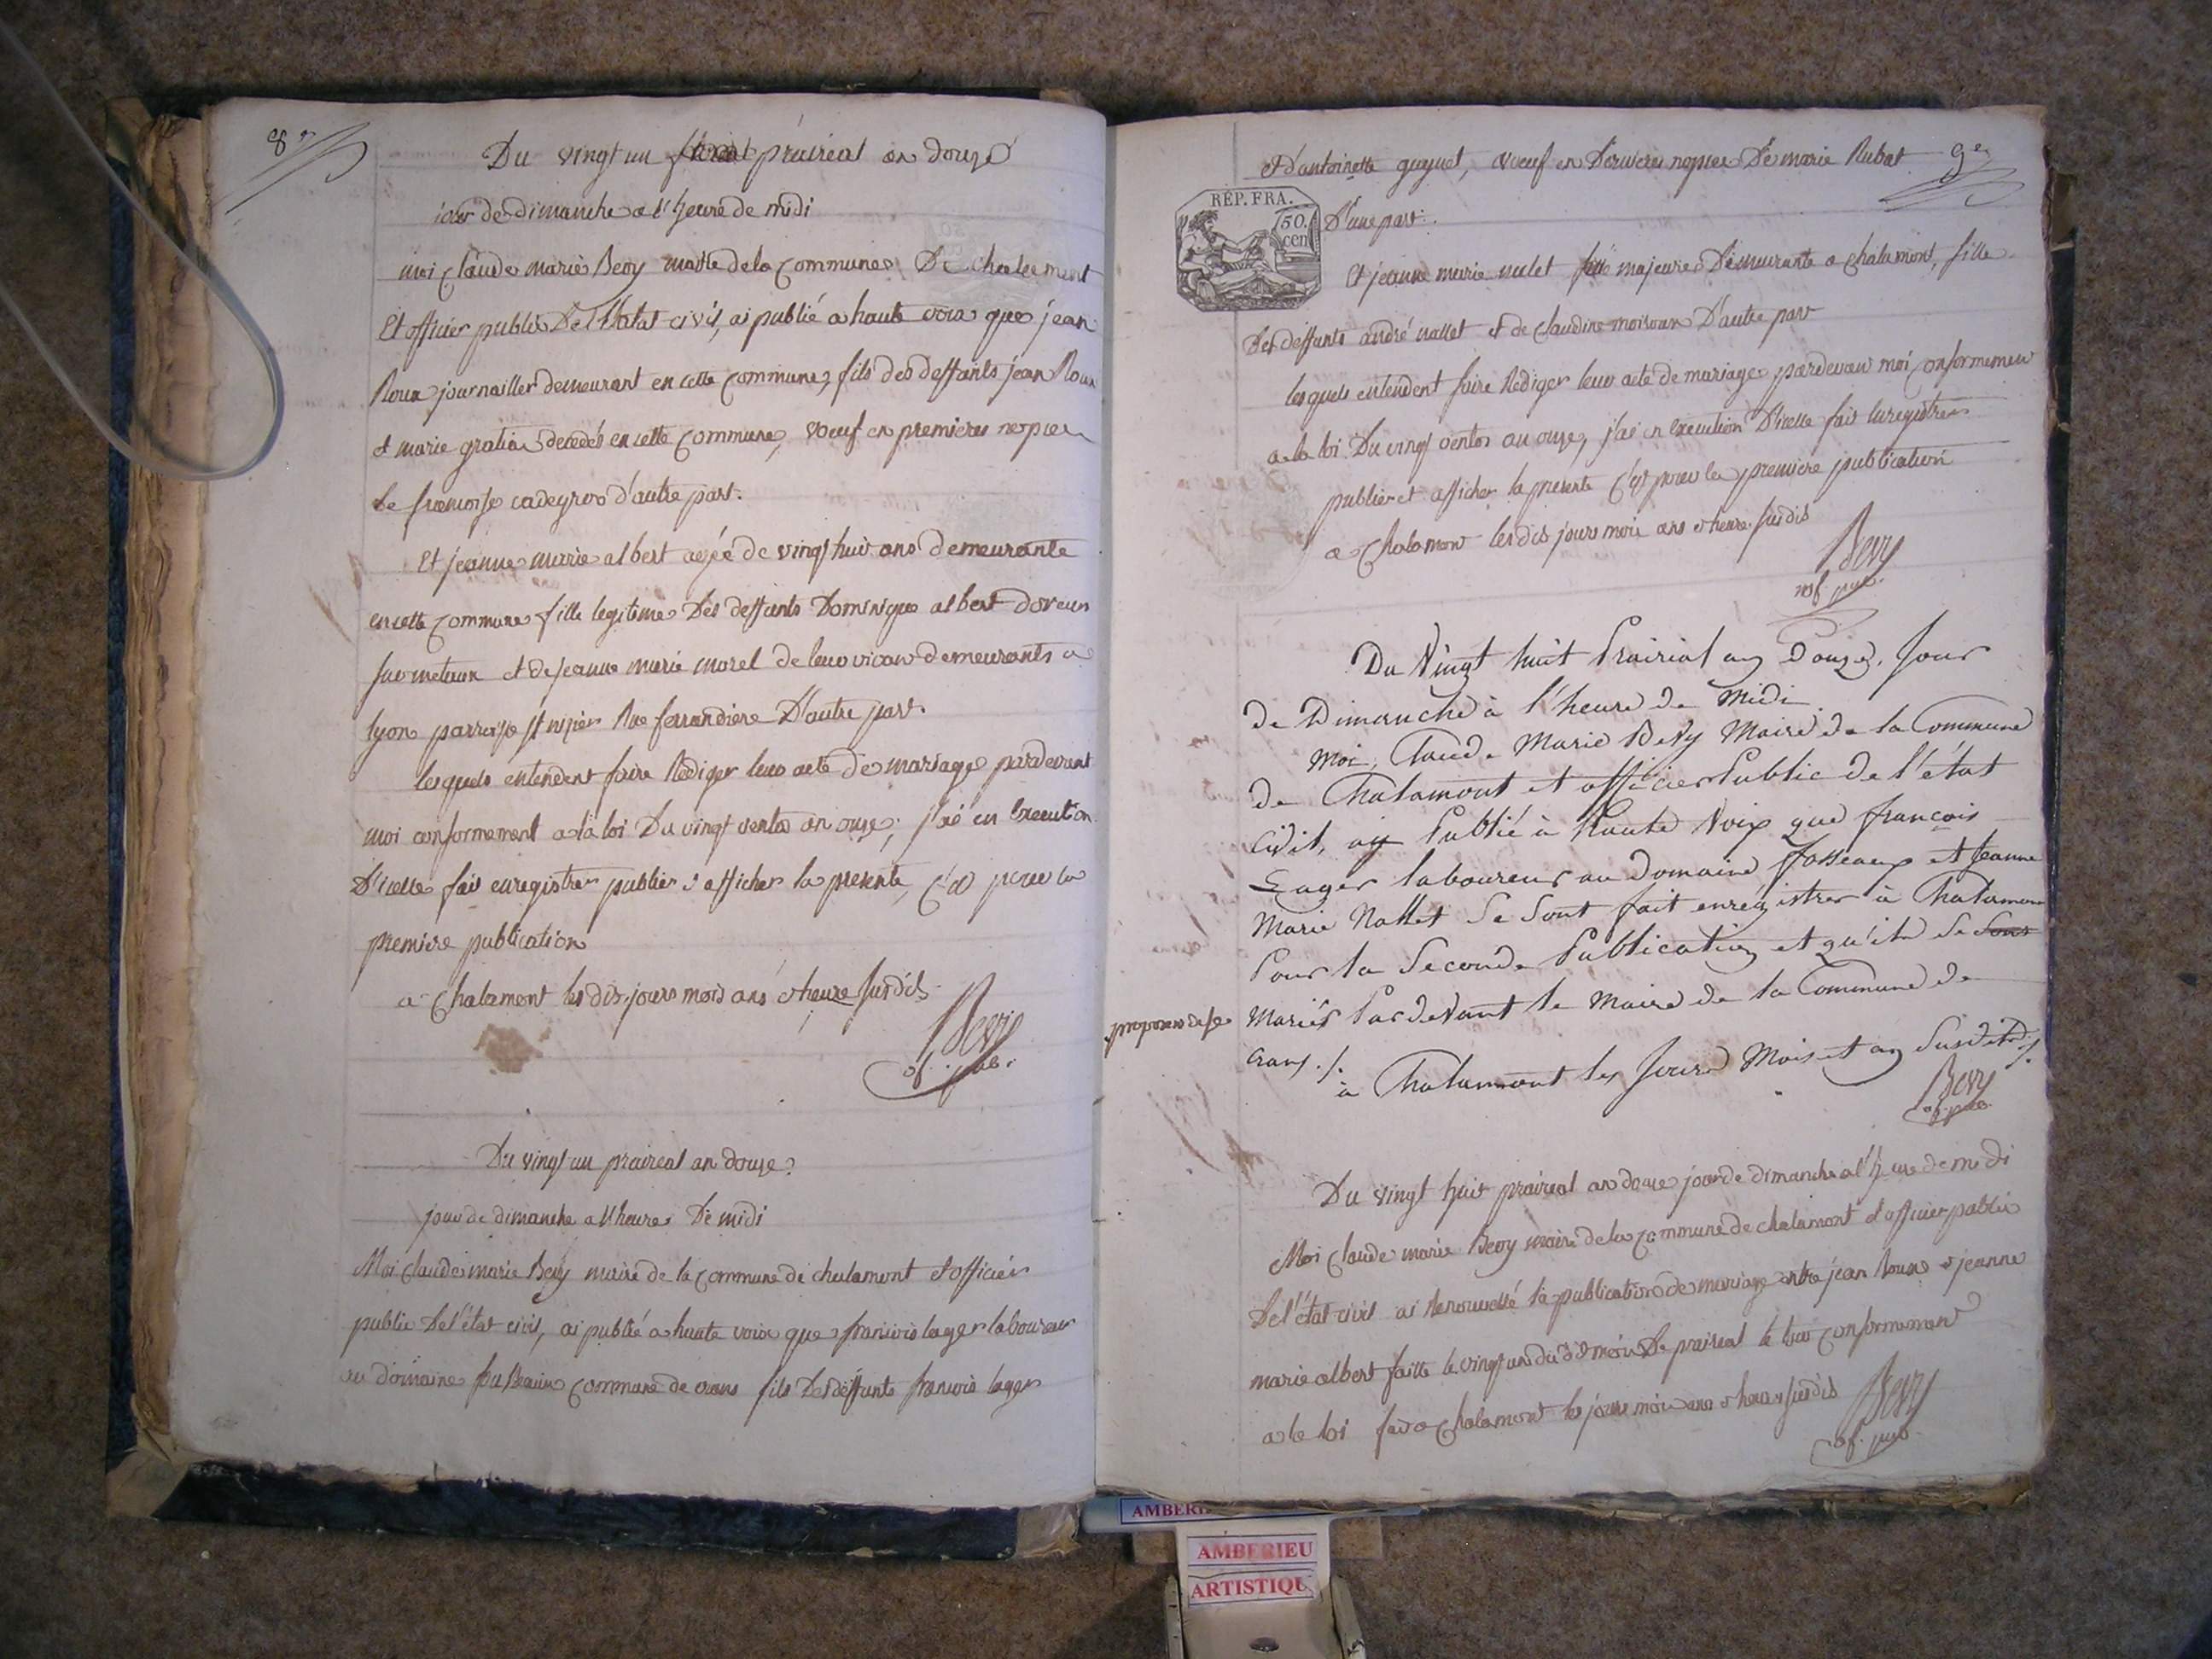 8e
Du vingt un prairéal an douze
jour de dimanche a l'heure de midi
moi Claude marie Bevy maire de la Commune De Chalamont
Et officier public De l'Etat civil, ai publié a haute voix que jean
Roux journallier demeurant en cette Commune, fils des deffunts jean Roux
et marie gratia decedés en cette Commune, voeuf en premieres nopces
de francoise cadegros d'autre part.
Et jeanne marie albert agée de vingt huit ans demeurante
en cette Commune fille legitime Des deffunts Dominique albert doreur
sur metaux et de jeanne marie morel de leur vivant demeurants a
lyon parroisse st nizier Rue ferrandiere D'autre part.
lesquels entendent faire Rediger leur acte de mariage pardevant
moi conformement a la loi Du vingt ventos an onze, j'ai en Execution
D'icelle fait enregistrer publier et afficher la presente, C'est pour la
premiere publication
a Chalamont les dis jours mois ans et heure susdits
Bevy
of. pub.
Du vingt un praireal an douze
jour de dimanche a l'heure De midi
Moi Claude marie Bevy maire de la Commune de chalamont et officier
public De l'état civil, ai publié a haute voix que francois lager laboureur
au domaine fusseaux commune de crans fils Des deffunts francois lager
9e
Et d'antoinette guyuet, voeuf en Dernieres nopces De marie Rubat
RÉP. FRA.
50.
cen
D'une part.
Et jeanne marie nallet fille majeure Demeurante a Chalamont, fille
Des deffunts andré nallet et de Claudine moiroux D'autre part
lesquels entendent faire Rediger leur acte de mariage pardevant moi Conformement
a la loi Du vingt ventos an onze, j'ai en Execution D'icelle fait Enregistrer
publier et afficher la presente C'est pour la premiere publication
a Chalamont les dis jours mois ans et heure susdis
Bevy
of. pub.
Du Vingt huit Prairial an Douze, Jour
de Dimanche à l'heure de Midi
Moi, Claude Marie Bevy Maire de la Commune
de Chalamont et officier Public de l'état
Civil, ay Publié à Haute Voix que françois
Lager laboureur au Domaine fosseaux et Jeanne
Marie Nallet Se Sont fait enrégistrer à Chalamont
Pour la Seconde Publication et qu'ils Se Sont
proposes de se
Mariér Pardevant le Maire de la Commune de
Crans ./.
à Chalamont les Jours Mois et an Susdits ./.
Bevy
of. pub.
Du vingt huit praireal an douze jour de dimanche a l'heure de midi
Moi Claude marie Bevy maire de la Commune de chalamont et officier public
De l'état civil ai Renouvellé la publication de mariage entre jean Roux et jeanne
marie albert faitte le vingt un du dit mois De praireal le tout conformement
a la loi fait a Chalamont les jours mois ans et heure susdis
Bevy
of. pub.
AMBERI
AMBERIEU
ARTISTIQU